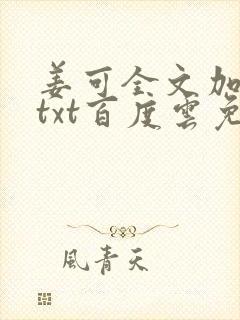 姜可全文加
txt百度雲免
風青天